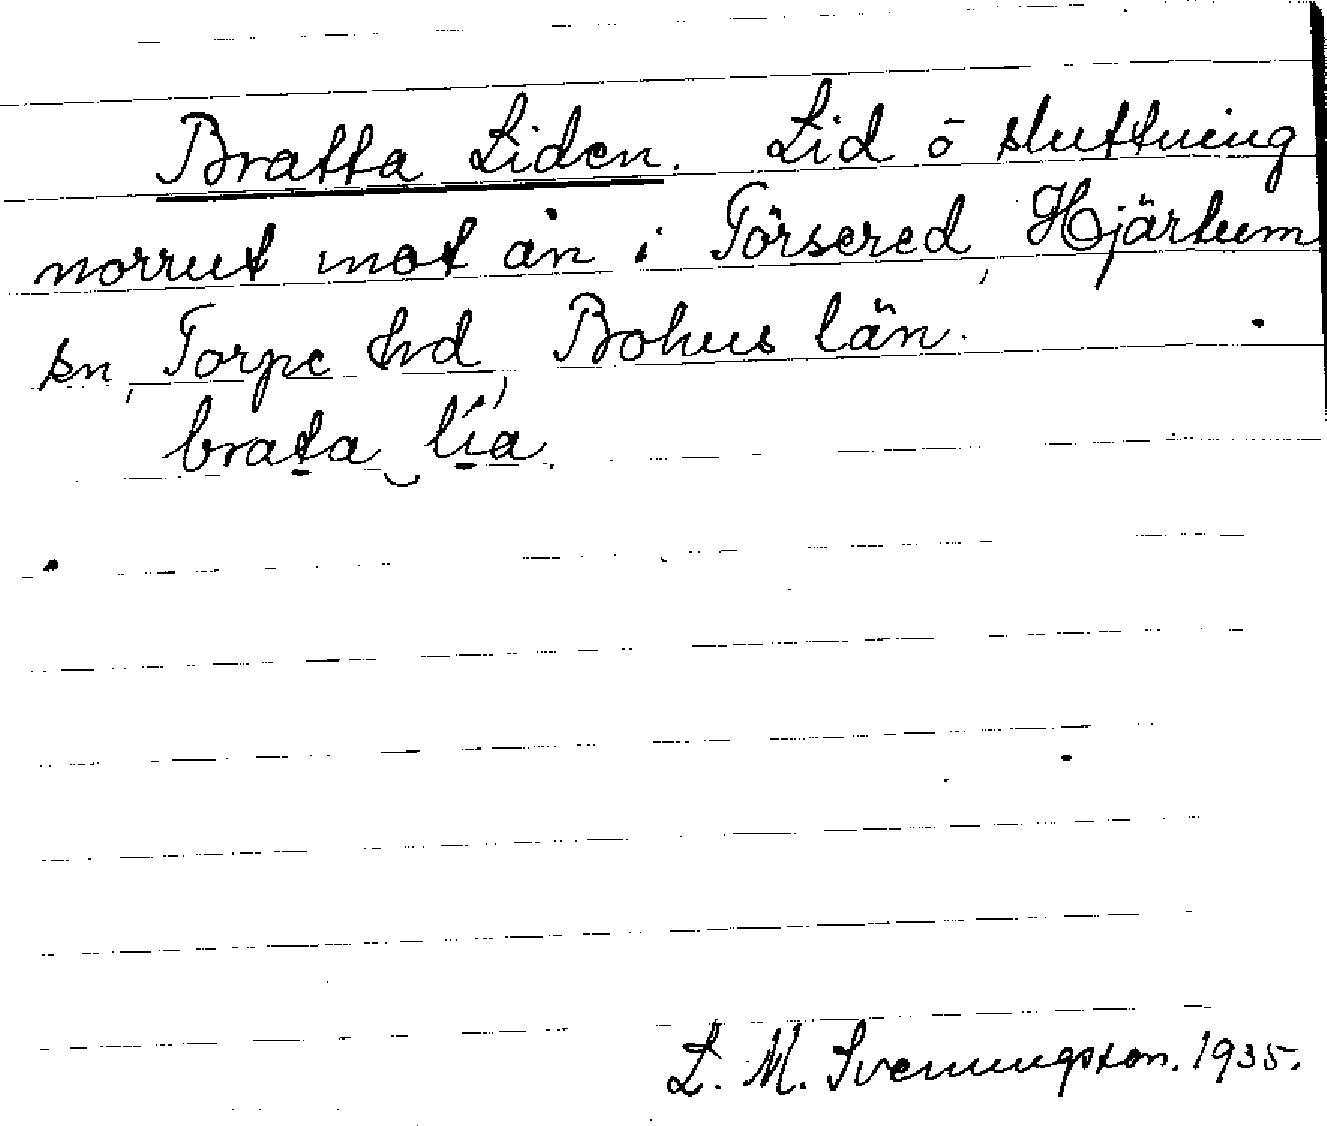 Bratta Liden. Lid o sluttning
norrut mot ån i Törsered, Hjärtum
sn, Torpe hd, Bohus län.
brata lia.
L. M. Svenungsson. 1935.